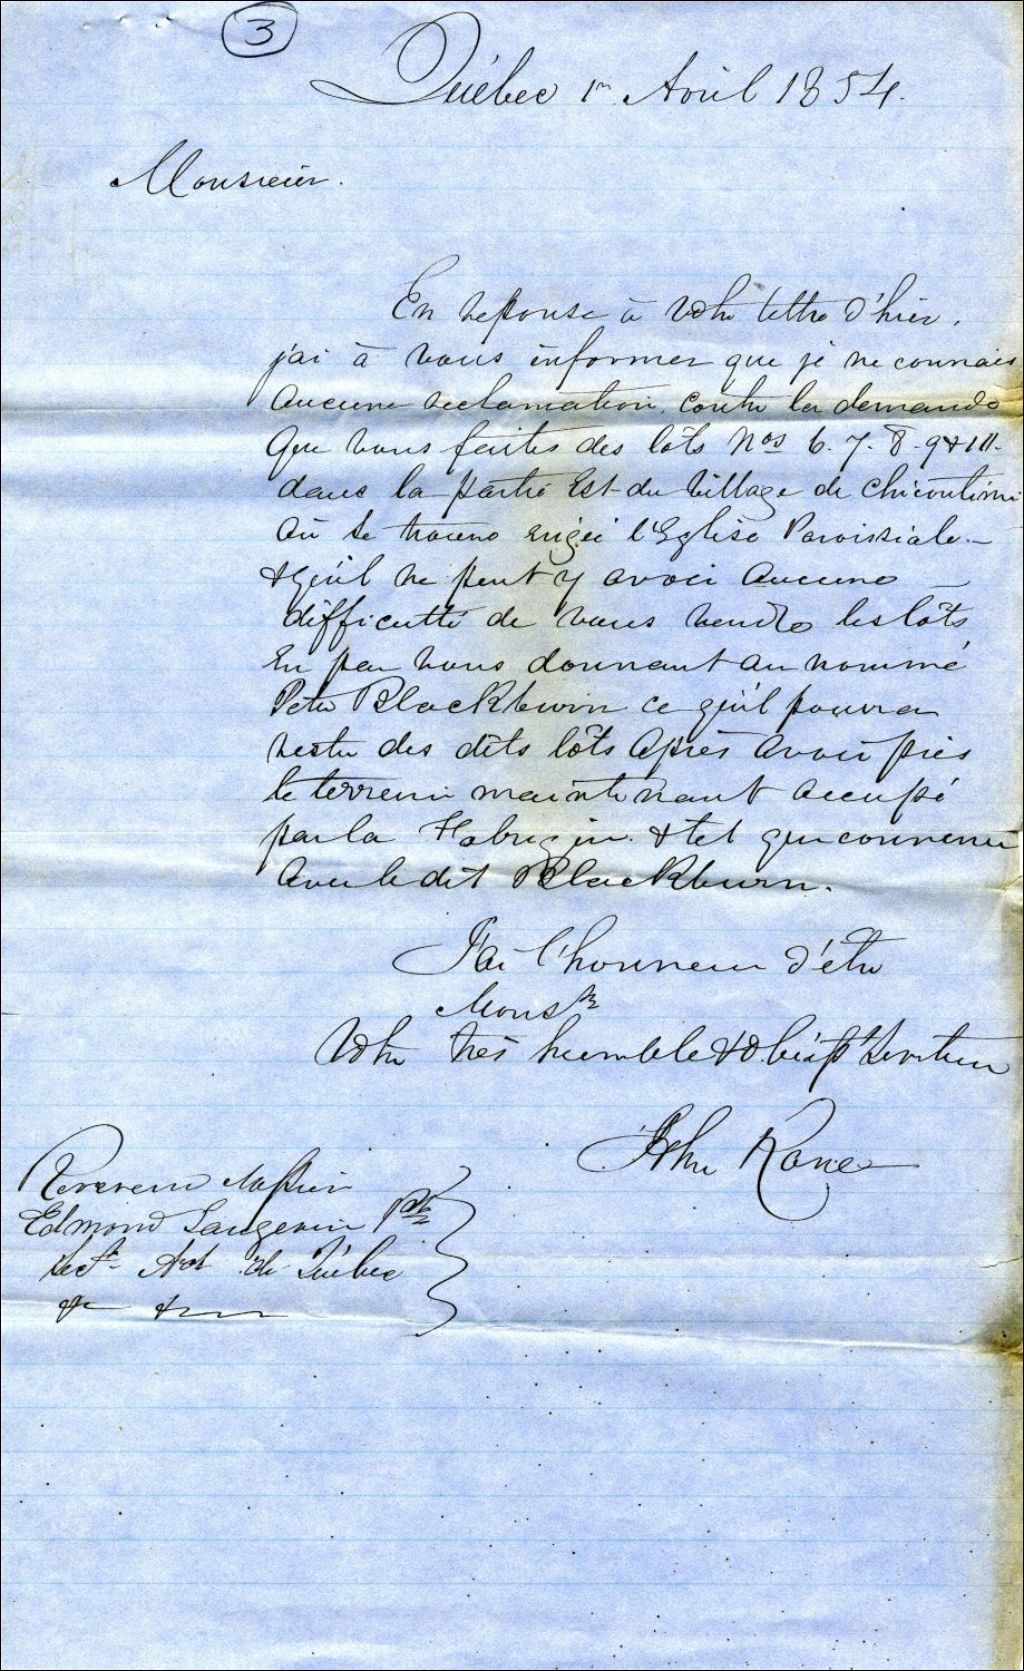 3
Québec 1er Avril 1854.
Monsieur.
En reponse à votre lettre d'hier,
j'ai à vous informer que je ne connais
aucune reclamation contre la demande
que vous faites des lôts Nos 6. 7. 8. 9 &
dans la partie Est du Village de Chicoutimi
où se trouve érigée l'Eglise Paroissiale.—
& qu'il ne peut y avoir aucune
difficulté de vous vendre les lôts
En par vous donnant au nommé
Peter Blackburn ce qu'il pourra
rester des dits lôts après avoir pris
le terrein maintenant occupé
par la & tel que convenu
avec le dit Blackburn.
J'ai l'honneur d'être
Monsr
Votre très humble & obéisst Serviteur
John Kane
Reverend Messire
Edmond Langevin Ptre
Sect Arct de Québec